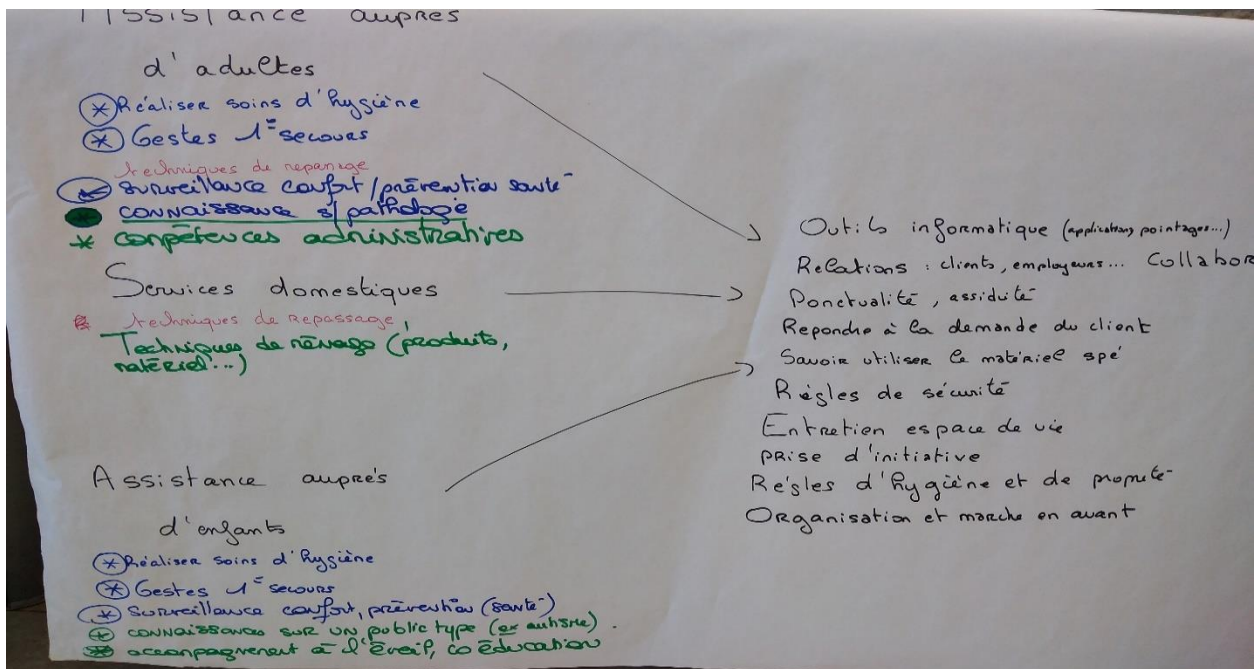 Assistance auprès
d'adultes
* Réaliser soins d'hygiène
* Gestes 1= secours
techniques de repassage
* surveillance confort/prévention santé
* connaissance s/pathologie
* compétences administratives
Services domestiques
techniques de repassage,
Techniques de ménage (produits,
matériel...)
Assistance auprès
d'enfants
* Réaliser soins d'hygiène
* Gestes 1= secours
* Surveillance confort, prévention (santé)
* connaissances sur un public type (ex autisme).
* accompagnement à l'éveil, co éducation
Outils informatique (applications pointages...)
Relations : clients, employeurs... Collabor
Ponctualité, assiduité
Repondre à la demande du client
Savoir utiliser le matériel spé
Règles de sécurité
Entretien espace de vie
prise d'initiative
Règles d'hygiène et de propreté
Organisation et marche en avant